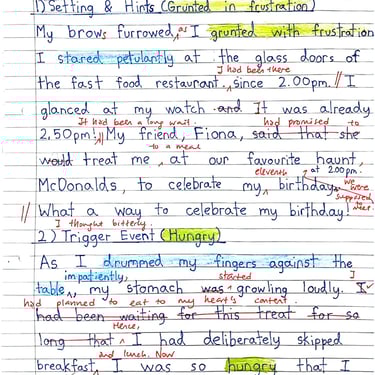 1) Setting & Hints (Grunted in frustration)
My brows furrowed, as I grunted with frustration
I stared petulantly at the glass doors of
I had been there
the fast food restaurant. since 2.00pm. // I
glanced at my watch and It was already
It had been a long wait. had promised to
2.50pm! // My friend, Fiona, said that she
to a meal
would treat me, at our favourite haunt,
eleventh at 2.00pm.
McDonalds, to celebrate my birthday. we were supposed to meet
// What a way to celebrate my birthday!
I thought bitterly.
2) Trigger Event (Hungry)
As I drummed my fingers against the
impatiently, started
table, my stomach was growling loudly. I
had planned to eat to my heart's content.
had been waiting for this treat for so
Hence,
long that I had deliberately skipped
and lunch. Now
breakfast, I was so hungry that I